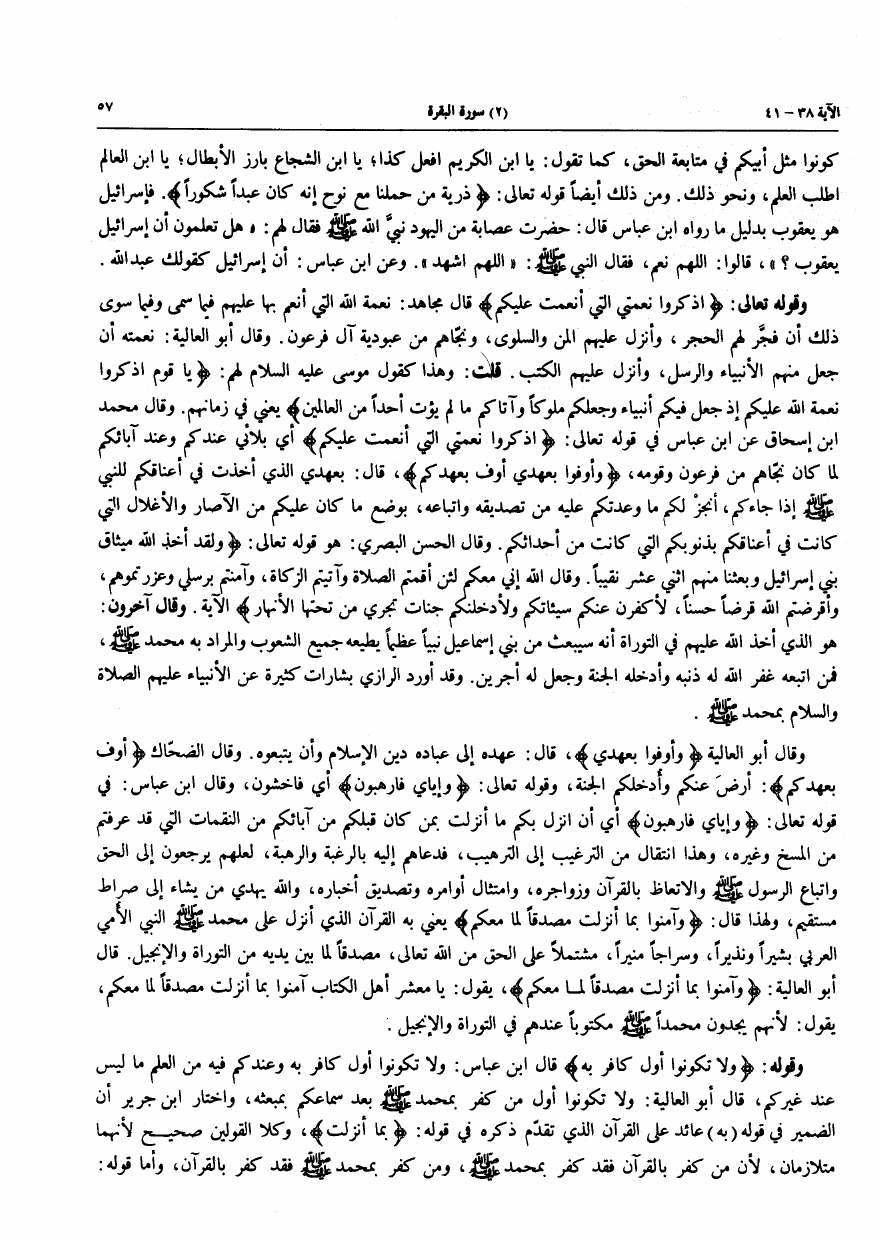 الآية ٣٨ – ٤١ (٢) سورة البقرة ٥٧
كونوا مثل أبيكم في متابعة الحق، كما تقول: يا ابن الكريم افعل كذا؛ يا ابن الشجاع بارز الأبطال؛ يا ابن العالم
اطلب العلم، ونحو ذلك. ومن ذلك أيضاً قوله تعالى: ﴿ ذرية من حملنا مع نوح إنه كان عبداً شكوراً ﴾. فإسرائيل
هو يعقوب بدليل ما رواه ابن عباس قال: حضرت عصابة من اليهود نبيَّ الله ﷺ فقال لهم: « هل تعلمون أن إسرائيل
يعقوب ؟ »، قالوا: اللهم نعم، فقال النبي ﷺ: « اللهم اشهد ». وعن ابن عباس: أن إسرائيل كقولك عبدالله .
وقوله تعالى: ﴿ اذكروا نعمتي التي أنعمت عليكم ﴾ قال مجاهد: نعمة الله التي أنعم بها عليهم فيما سمى وفيما سوى
ذلك أن فجَّر لهم الحجر ، وأنزل عليهم المن والسلوى، ونجّاهم من عبودية آل فرعون. وقال أبو العالية: نعمته أن
جعل منهم الأنبياء والرسل، وأنزل عليهم الكتب. قلت: وهذا كقول موسى عليه السلام لهم: ﴿ يا قوم اذكروا
نعمة الله عليكم إذ جعل فيكم أنبياء وجعلكم ملوكاً وآتاكم ما لم يؤت أحداً من العالمين ﴾ يعني في زمانهم. وقال محمد
ابن إسحاق عن ابن عباس في قوله تعالى: ﴿ اذكروا نعمتي التي أنعمت عليكم ﴾ أي بلائي عندكم وعند آبائكم
لما كان نجّاهم من فرعون وقومه، ﴿ وأوفوا بعهدي أوف بعهدكم ﴾، قال: بعهدي الذي أخذت في أعناقكم للنبي
ﷺ إذا جاءكم، أنجزْ لكم ما وعدتكم عليه من تصديقه واتباعه، بوضع ما كان عليكم من الآصار والأغلال التي
كانت في أعناقكم بذنوبكم التي كانت من أحداثكم. وقال الحسن البصري: هو قوله تعالى: ﴿ ولقد أخذ الله ميثاق
بني إسرائيل وبعثنا منهم اثني عشر نقيباً. وقال الله إني معكم لئن أقمتم الصلاة وآتيتم الزكاة، وآمنتم برسلي وعزرتموهم،
وأقرضتم الله قرضاً حسناً، لأكفرن عنكم سيئاتكم ولأدخلنكم جنات تجري من تحتها الأنهار ﴾ الآية. وقال آخرون:
هو الذي أخذ الله عليهم في التوراة أنه سيبعث من بني إسماعيل نبياً عظيماً يطيعه جميع الشعوب والمراد به محمد ﷺ،
فمن اتبعه غفر الله له ذنبه وأدخله الجنة وجعل له أجرين. وقد أورد الرازي بشارات كثيرة عن الأنبياء عليهم الصلاة
والسلام بمحمد ﷺ .
وقال أبو العالية ﴿ وأوفوا بعهدي ﴾، قال: عهده إلى عباده دين الإسلام وأن يتبعوه. وقال الضحّاك ﴿ أوف
بعهدكم ﴾: أرضَ عنكم وأدخلكم الجنة، وقوله تعالى: ﴿ وإياي فارهبون ﴾ أي فاخشون، وقال ابن عباس: في
قوله تعالى: ﴿ وإياي فارهبون ﴾ أي أن انزل بكم ما أنزلت بمن كان قبلكم من آبائكم من النقمات التي قد عرفتم
من المسخ وغيره، وهذا انتقال من الترغيب إلى الترهيب، فدعاهم إليه بالرغبة والرهبة، لعلهم يرجعون إلى الحق
واتباع الرسول ﷺ والاتعاظ بالقرآن وزواجره، وامتثال أوامره وتصديق أخباره، والله يهدي من يشاء إلى صراط
مستقيم، ولهذا قال: ﴿ وآمنوا بما أنزلت مصدقاً لما معكم ﴾ يعني به القرآن الذي أنزل على محمد ﷺ النبي الأمي
العربي بشيراً ونذيراً، وسراجاً منيراً، مشتملاً على الحق من الله تعالى، مصدقاً لما بين يديه من التوراة والإنجيل. قال
أبو العالية: ﴿ وآمنوا بما أنزلت مصدقاً لما معكم ﴾، يقول: يا معشر أهل الكتاب آمنوا بما أنزلت مصدقاً لما معكم،
يقول: لأنهم يجدون محمداً ﷺ مكتوباً عندهم في التوراة والإنجيل .
وقوله: ﴿ ولا تكونوا أول كافر به ﴾ قال ابن عباس: ولا تكونوا أول كافر به وعندكم فيه من العلم ما ليس
عند غيركم، قال أبو العالية: ولا تكونوا أول من كفر بمحمد ﷺ بعد سماعكم بمبعثه، واختار ابن جرير أن
الضمير في قوله (به) عائد على القرآن الذي تقدّم ذكره في قوله: ﴿ بما أنزلت ﴾، وكلا القولين صحيح لأنهما
متلازمان، لأن من كفر بالقرآن فقد كفر بمحمد ﷺ، ومن كفر بمحمد ﷺ فقد كفر بالقرآن، وأما قوله: